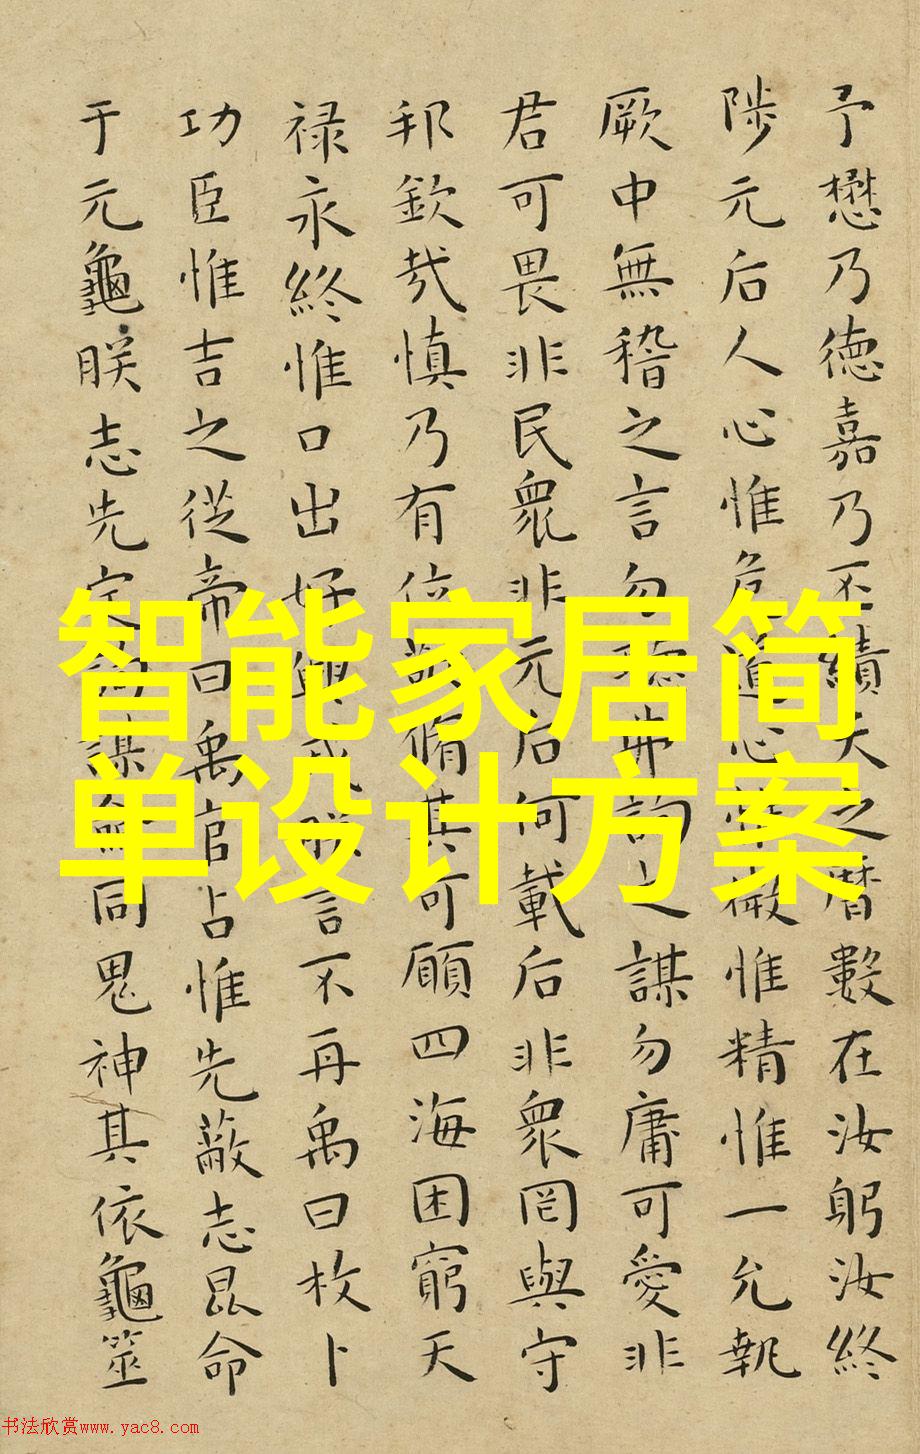 予懋乃德嘉乃丕績天之曆數在汝躬汝終
陟元后人心惟危道心惟微惟精惟一允執
厥中無稽之言勿聽弗詢之謀勿庸可愛非
君可畏非民眾非元后何載后非眾罔與守
邦欽哉慎乃有位敬脩其可願四海困窮天
禄永終惟口出好興戎朕言不再禹曰枚卜
功臣惟吉之從帝曰禹官占惟先蔽志昆命
于元龜朕志先定詢謀僉同鬼神其依龜筮
智能家居简
单设计方案
书法欣赏www.yac8.com